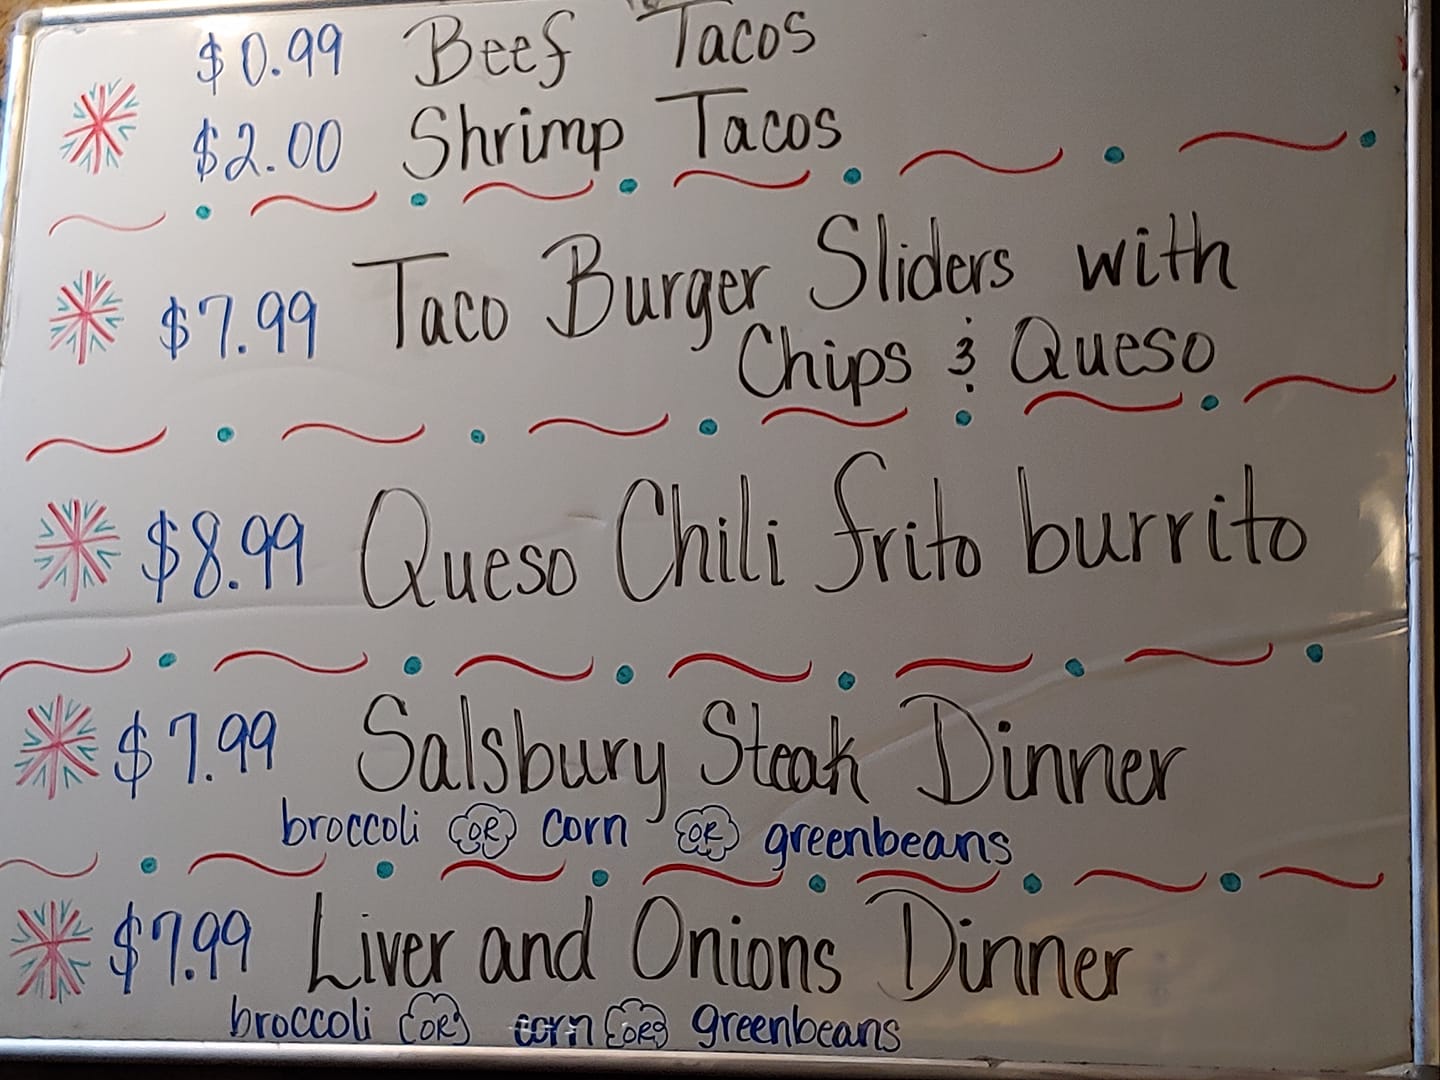 $0.99 Beef Tacos
$2.00 Shrimp Tacos
$7.99 Taco Burger Sliders with
Chips & Queso
$8.99 Queso Chili frito burrito
$7.99 Salsbury Steak Dinner
broccoli OR corn OR greenbeans
$7.99 Liver and Onions Dinner
broccoli OR corn OR greenbeans